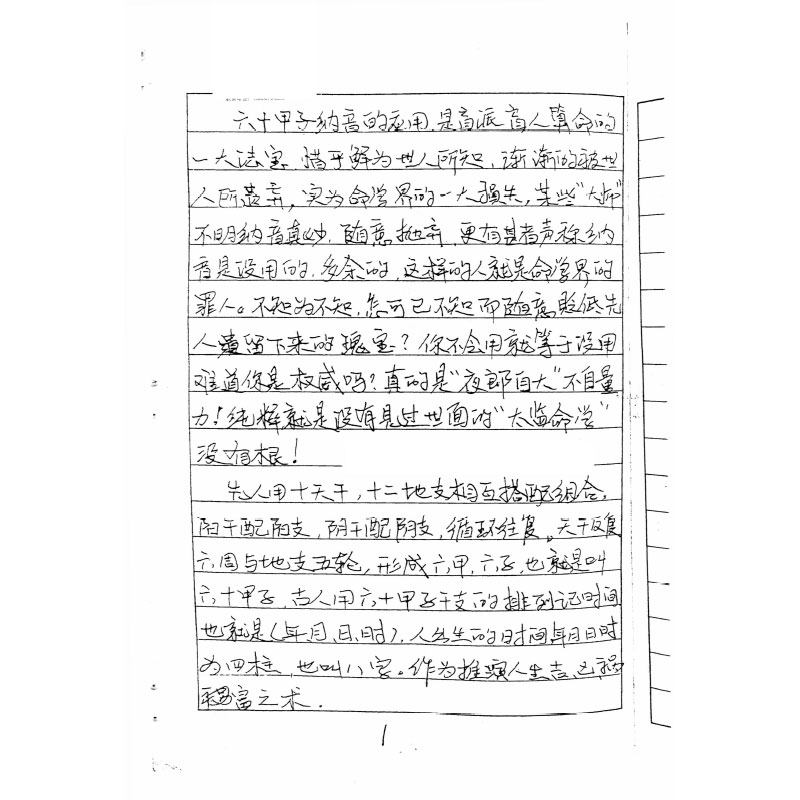 六十甲子纳音的应用,是盲派盲人算命的
一大法宝.惜乎鲜为世人所知,渐渐的被世
人所丢弃,实为命学界的一大损失,某些"大师"
不明纳音真妙.随意抛弃.更有甚者声称纳
音是没用的.多余的.这样的人就是命学界的
罪人。不知为不知.怎可己不知而随意贬低先
人遗留下来的瑰宝?你不会用就等于没用
难道你是权威吗?真的是"夜郎自大"不自量
力!纯粹就是没有见过世面的"太监命学"
没有根!
先人用十天干,十二地支相互搭配组合。
阳干配阳支,阴干配阴支,循环往复。天干反复
六周与地支五轮,形成六甲,六子,也就是叫
六十甲子.古人用六十甲子干支的排列记时间
也就是(年月、日、时).人出生的时间年月日时
为四柱,也叫八字。作为推演人生吉凶祸
富之术.
1